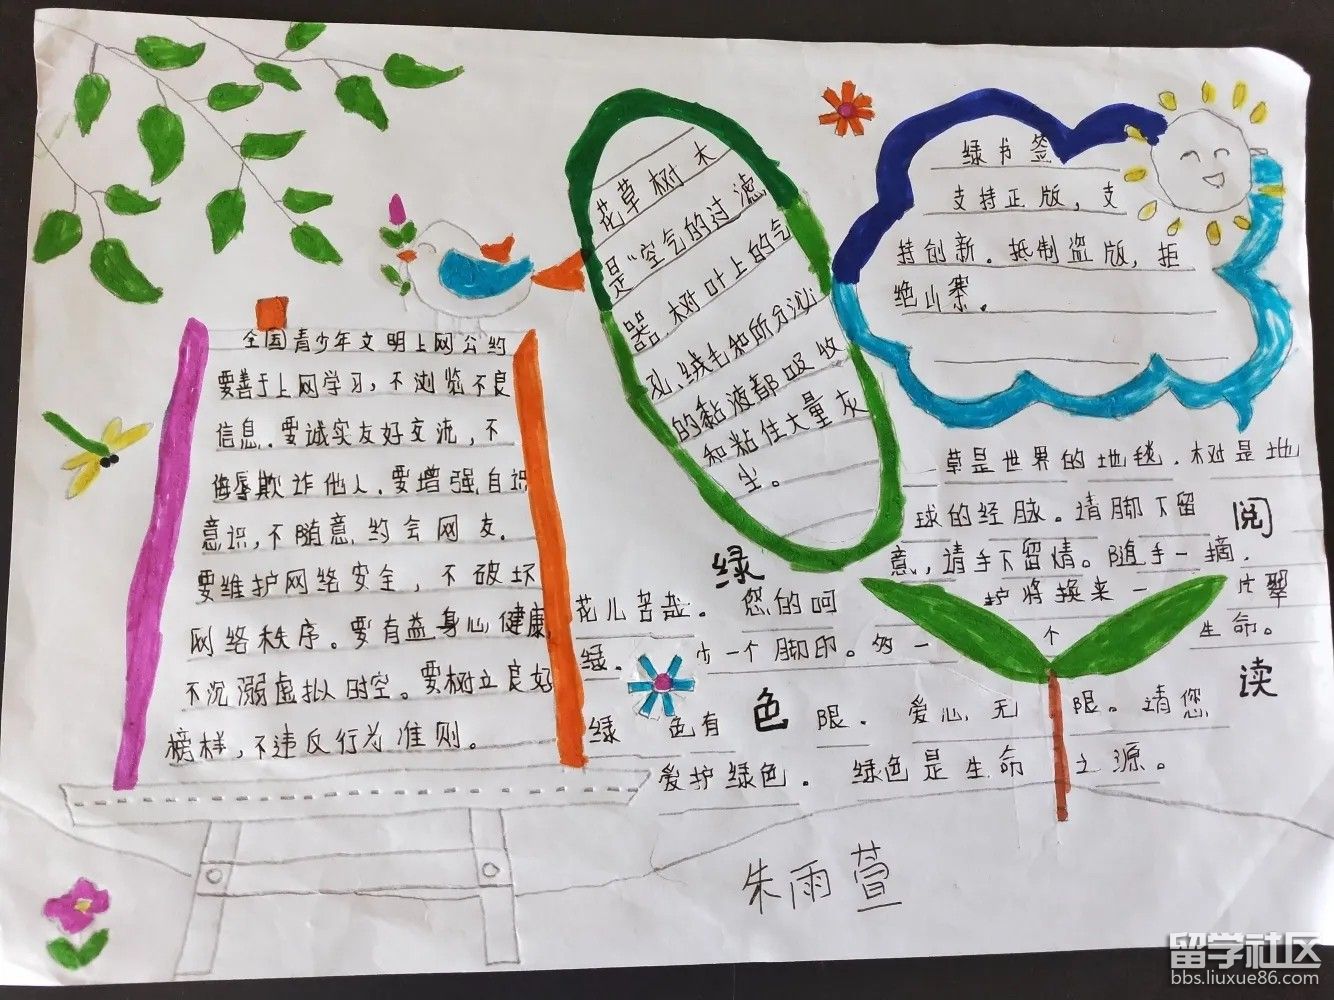 全国青少年文明上网公约
要善于上网学习，不浏览不良
信息.要诚实友好交流，不
侮辱欺诈他人.要增强自识
意识，不随意约会网友.
要维护网络安全，不破坏
网络秩序。要有益身心健康,
不沉溺虚拟时空。要树立良好
榜样，不违反行为准则。
花草树木
是“空气的过滤
器.树叶上的气
孔、绒毛和所分泌
的黏液都吸收
和粘住大量灰
尘。
绿书签
支持正版，支
持创新.抵制盗版，拒
绝山寨。
绿
色
阅
读
草是世界的地毯.树是地
球的经脉。请脚下留
意，请手下留情。随手一摘.
护将换来一片翠
花儿苦哉.您的呵
绿.少一个脚印。多一个生命。
绿色有限.爱心无限。请您
爱护绿色.绿色是生命之源。
朱雨萱
留学社区
bbs.liuxue86.com